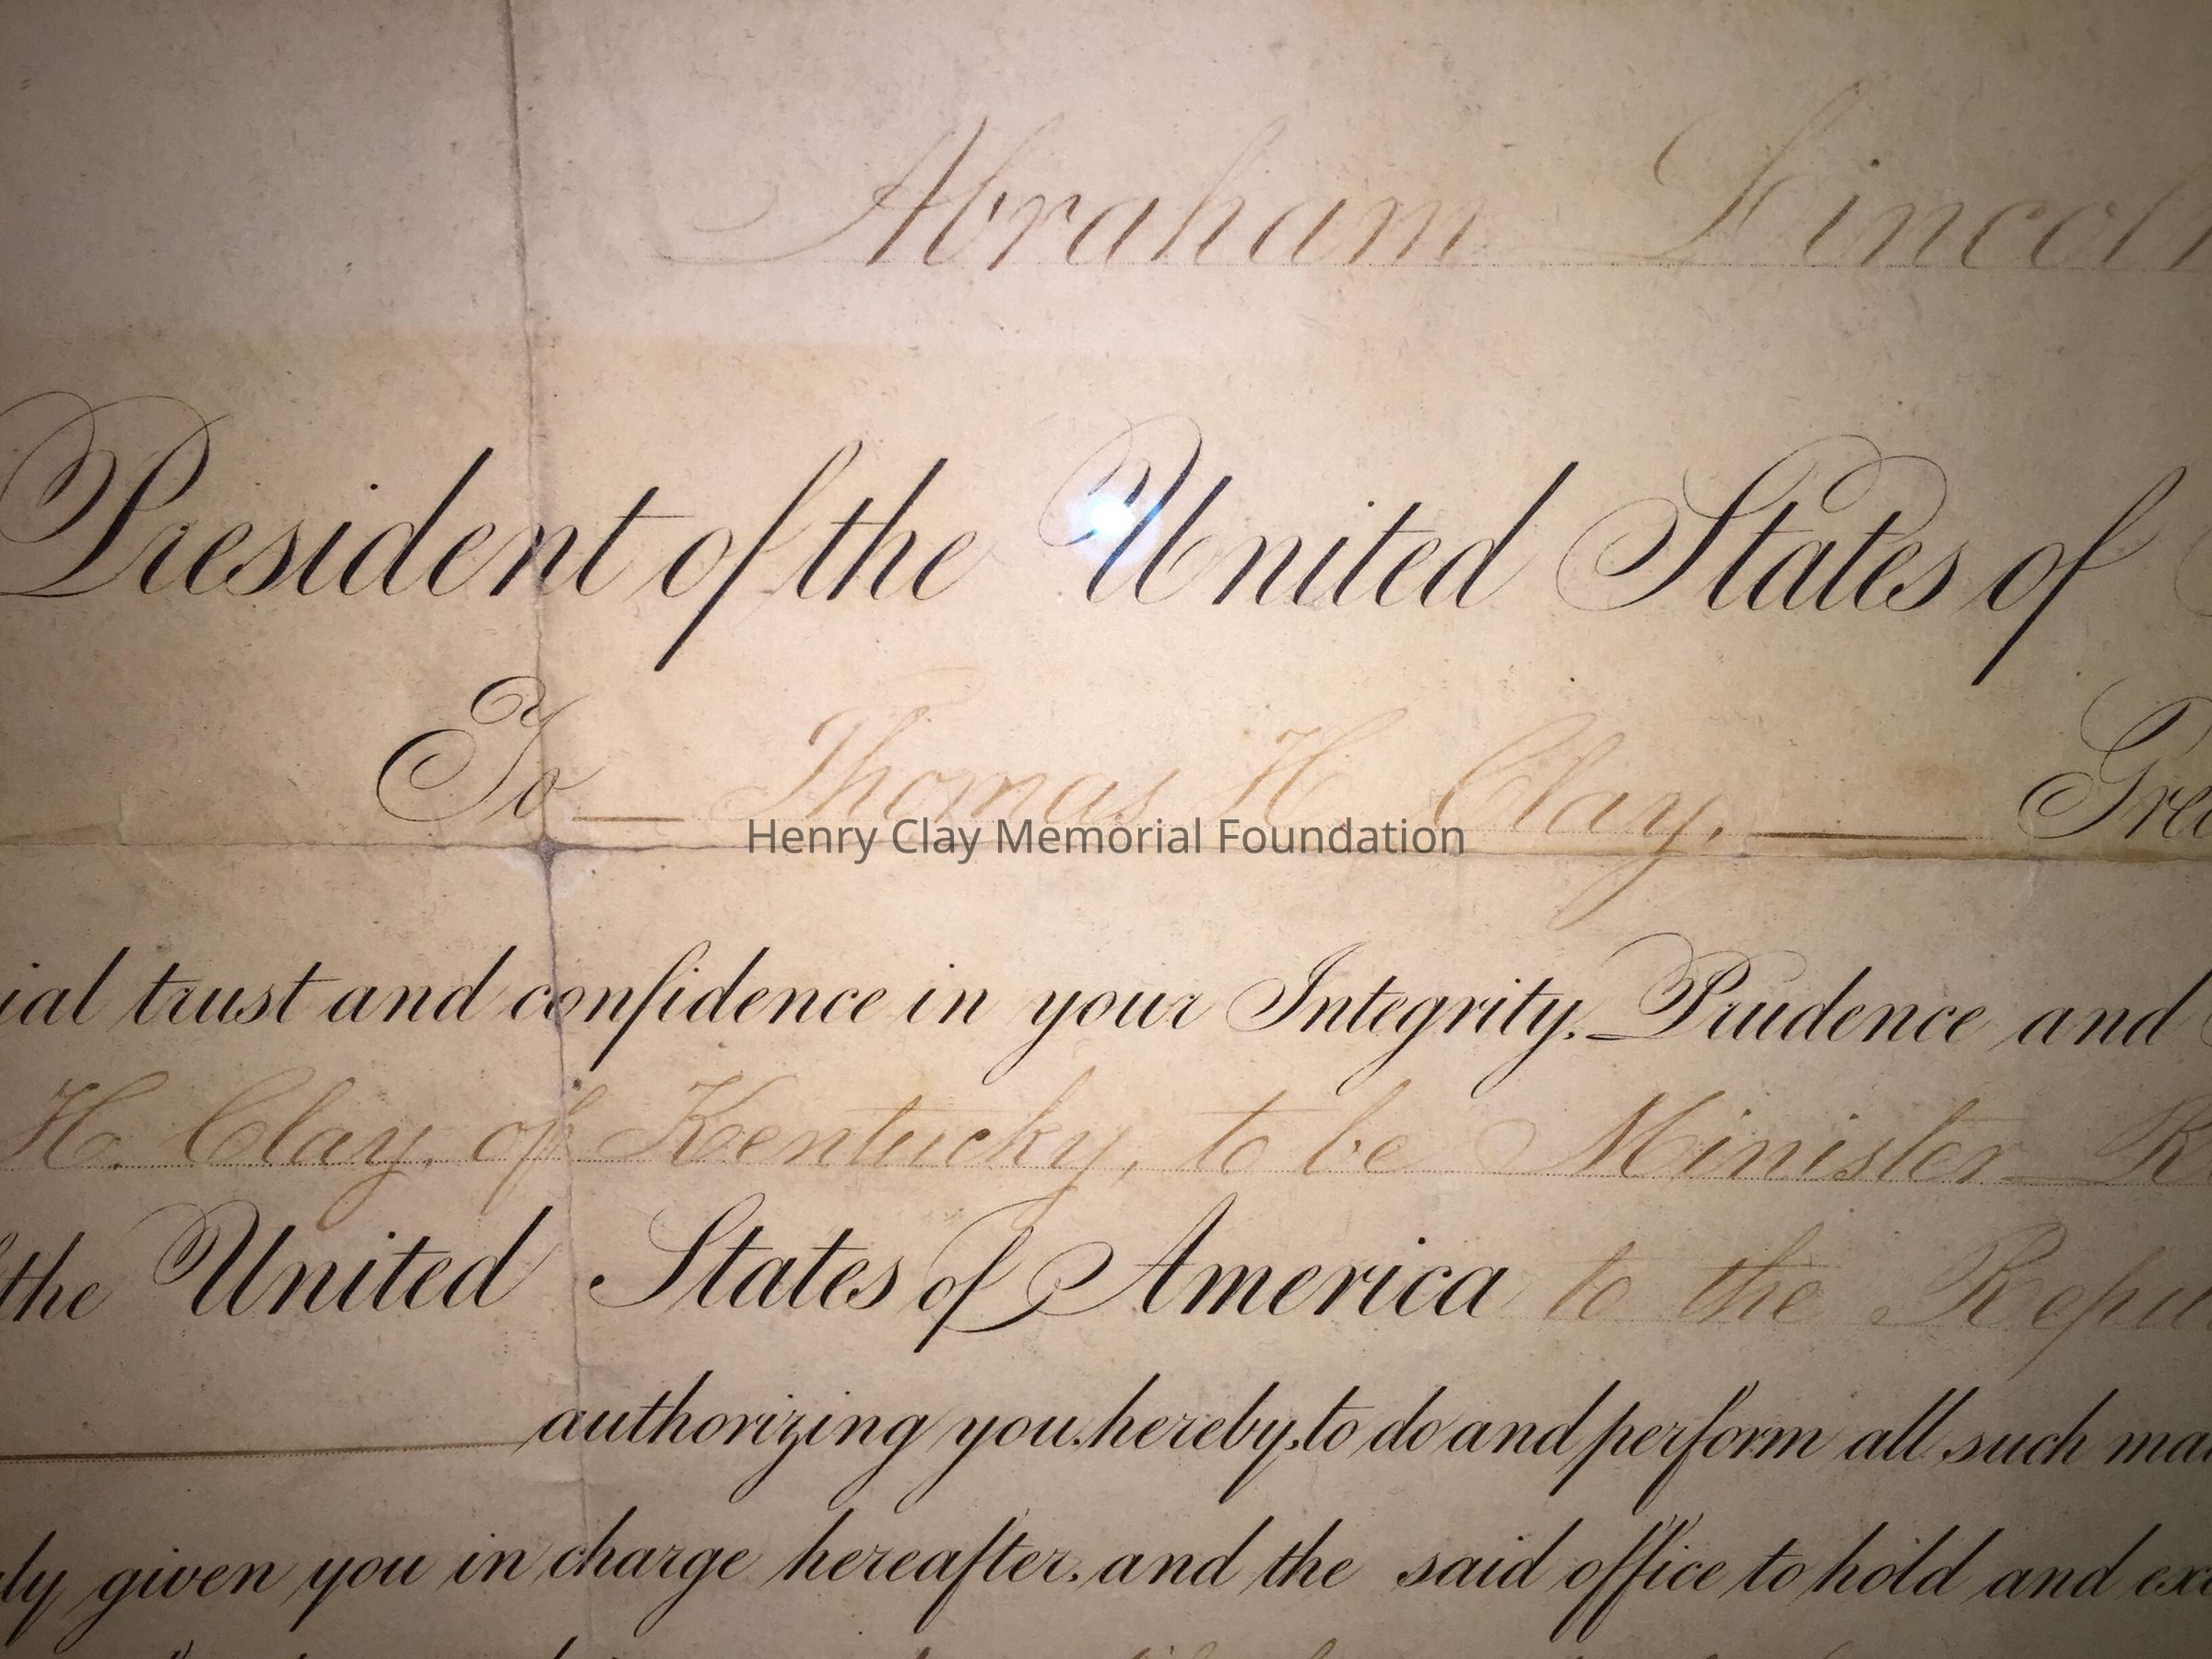 Abraham Lincoln
President of the United States of
To Thomas H. Clay, Gree
Henry Clay Memorial Foundation
ial trust and confidence in your Integrity, Prudence and
H. Clay, of Kentucky, to be Minister R
the United States of America to the Repu
authorizing you, hereby, to do and perform all such ma
ly given you in charge hereafter, and the said office to hold and exe